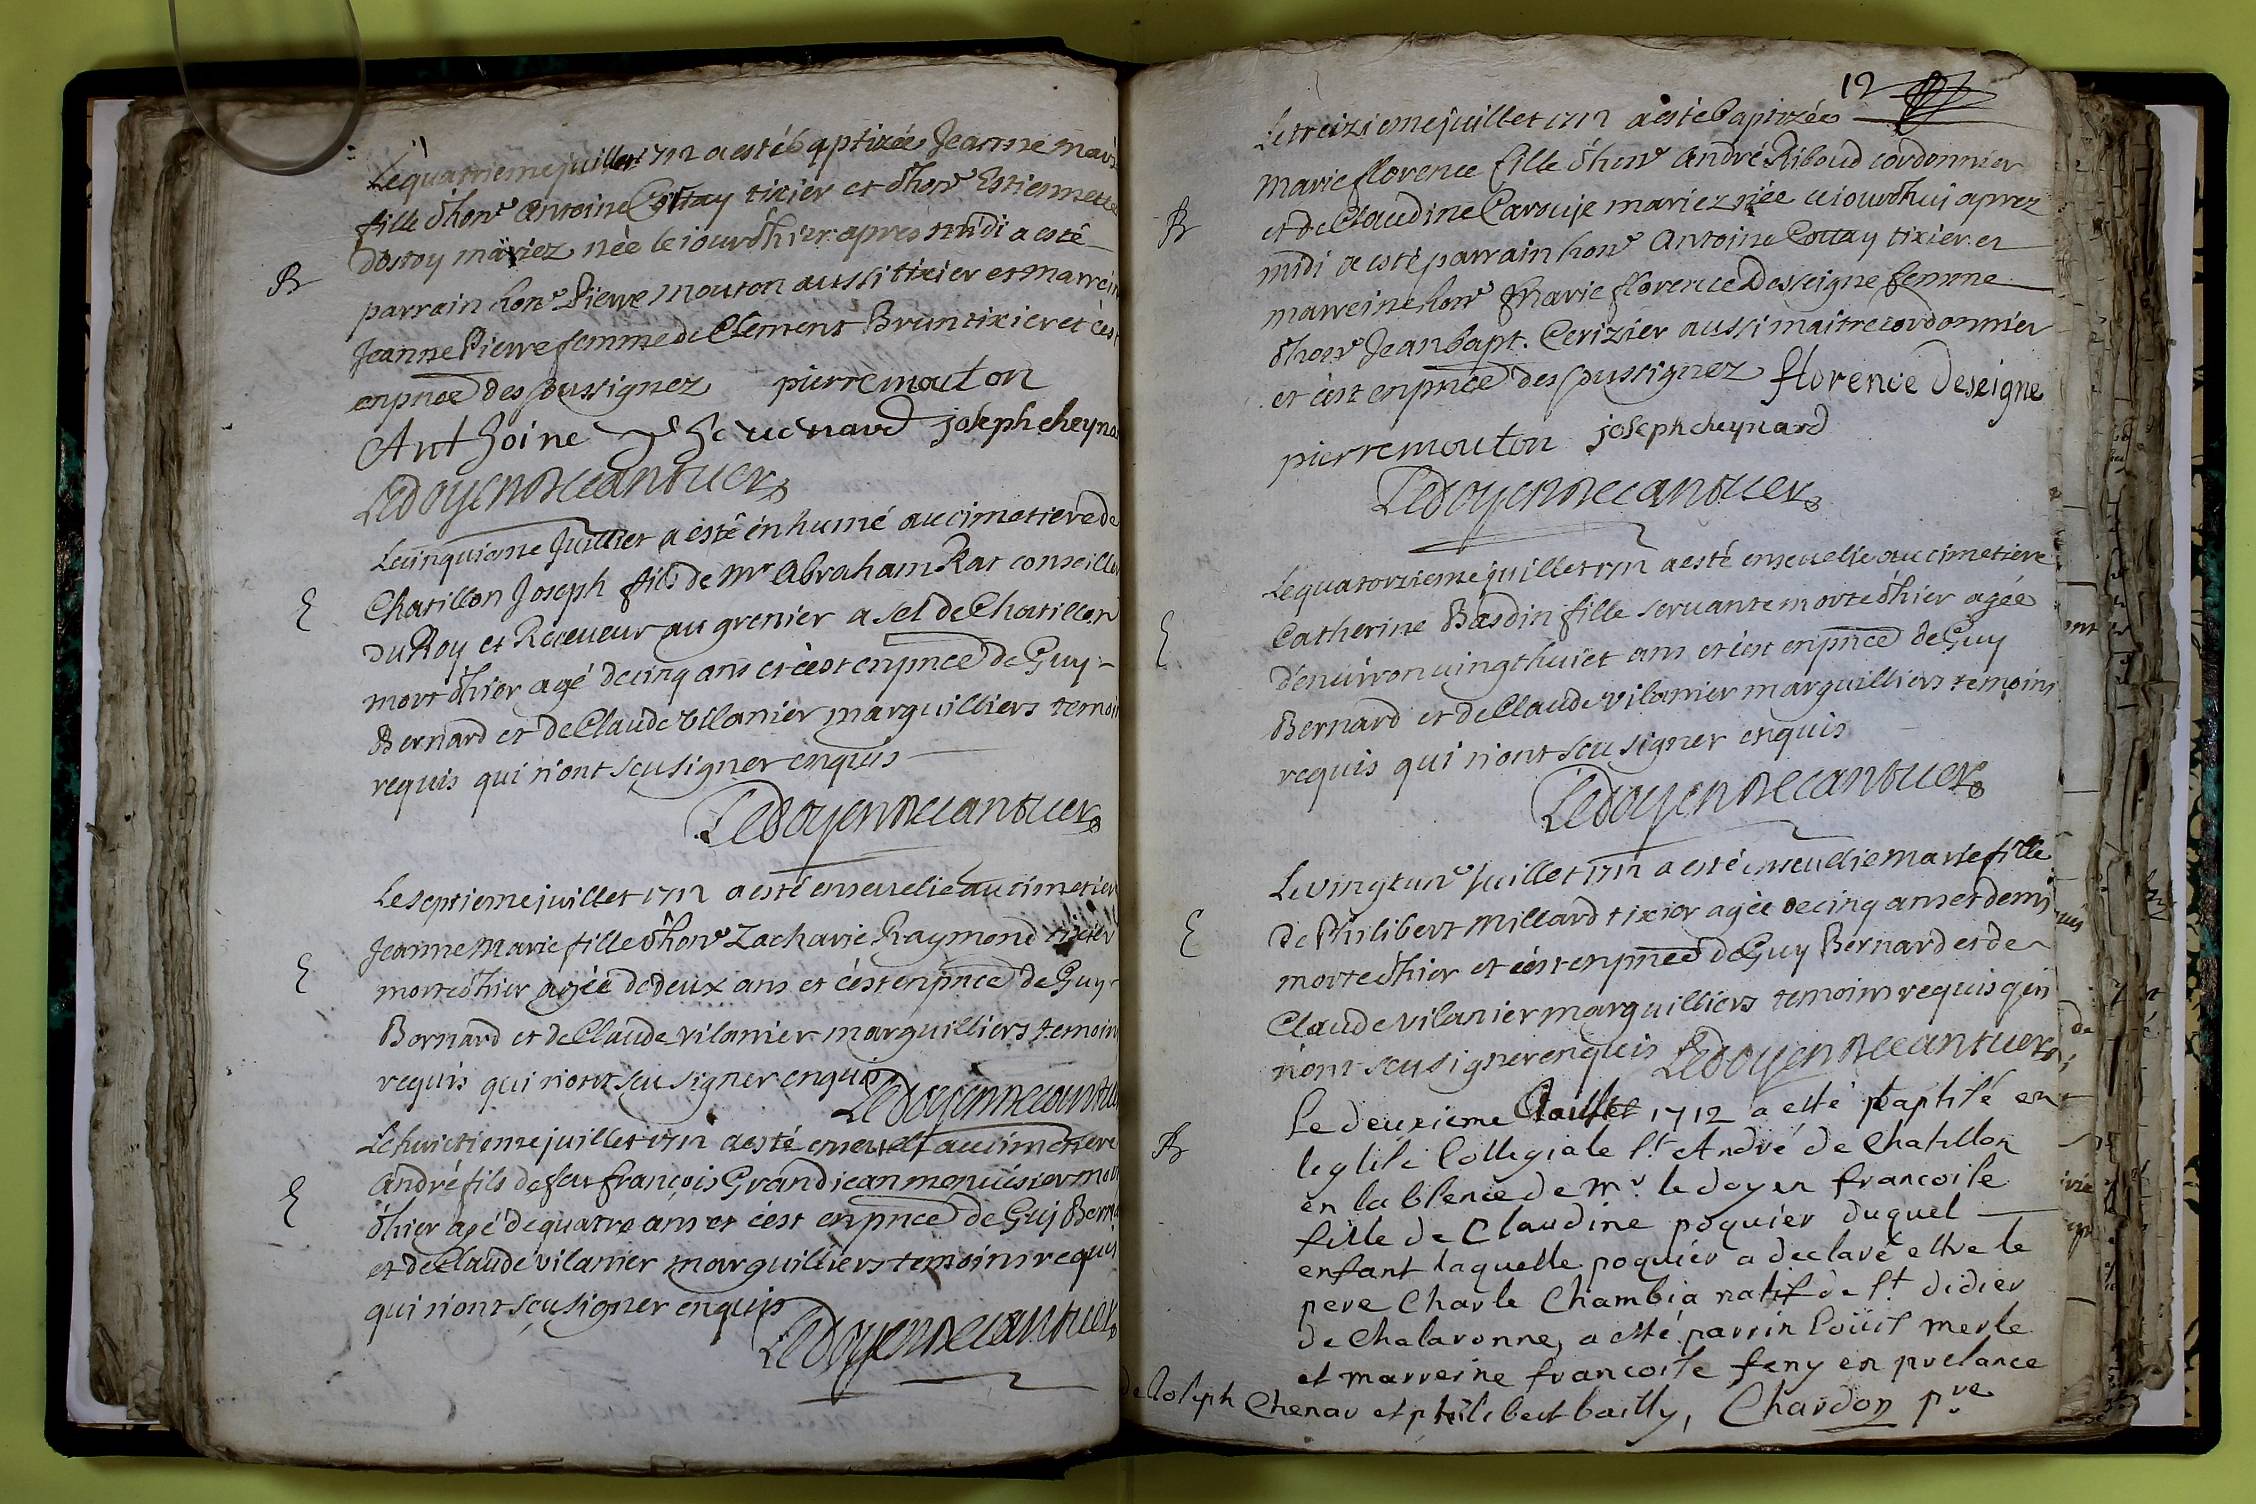 Le quatrieme juillet 1712 a esté baptizée Jeanne Marie
fille d'hon^e Antoine Cottay tixier et d'hon^e Estiennette
mariez née le jourd'hier apres midi a esté
B parrain hon^e Pierre Mouton aussi tixier et marreine
Jeanne Pierre femme de Clement Brun tixier et c'est
en pnce des soussignez pierre mouton
Anthoine joseph cheyna
Ledoyen Decantuer
Le cinquieme Juillet a esté enhumé au cimetiere de
E Chatillon Joseph fils de Mr Abraham Rat conseiller
Du Roy et Receveur au grenier a sel de Chatillon
mort d'hier agé de cinq ans et c'est en pnce de Guy
Bernard et de Claude Vilanier marguilliers temoins
requis qui n'ont sceu signer enquis
Ledoyen Decantuer
Le septieme juillet 1712 a esté ensevelie au cimetiere
E Jeanne Marie fille d'hon^e Zacharie Raymond tixier
morte d'hier agée de deux ans et c'est en pnce de Guy
Bernard et de Claude Vilanier marguilliers temoins
requis qui n'ont sceu signer enquis
Ledoyen Decantuer
Le huictieme juillet 1712 a esté enseveli au cimetiere
E André fils de feu françois Grandjean menuisier mort
d'hier agé de quatre ans et c'est en pnce de Guy Bernard
et de Claude Vilanier marguilliers temoins requis
qui n'ont sceu signer enquis
Ledoyen Decantuer
12
Le treizieme juillet 1712 a esté baptizée
Marie florence fille d'hon^e André Riboud cordonnier
B et de Claudine Carouje mariez née ce jourd'hui aprez
midi a esté parrain hon^e Antoine Cottay tixier et
marreine hon^e Marie florence Desseigne femme
d'hon^e Jean bapt. Cerizier aussi maitre cordonnier
et c'est en pnce des soussignez florence Deseigne
pierre mouton joseph cheynard
Ledoyen Decantuer
Le quatorzieme juillet 1712 a esté ensevelie au cimetiere
E Catherine Basdin fille servante morte d'hier agée
d'environ vingt huict ans et c'est en pnce de Guy
Bernard et de Claude Vilanier marguilliers temoins
requis qui n'ont sceu signer enquis
Ledoyen Decantuer
Le vingt un^e Juillet 1712 a esté ensevelie Marie fille
E de Philibert Millard tixier agée de cinq ans et demi
morte d'hier et c'est en pnce de Guy Bernard et de
Claude Vilanier marguilliers temoins requis qui
n'ont sceu signer enquis Ledoyen Decantuer
Le deuxieme 1712 a esté baptisé en
B leglise Collegiale st André de Chatillon
en labsence de mr le doyen francoise
fille de Claudine poquier duquel
enfant laquelle poquier a declaré estre le
pere Charle Chambia natif de st didier
de Chalaronne, a esté parrin loüis merle
et marreine francoise feny en presance
de Joseph Chenav et philibert bailly, Chardon pre